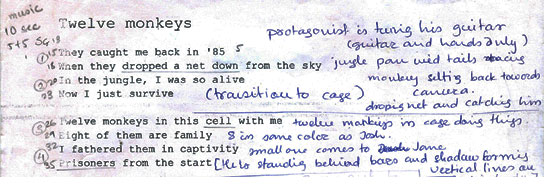 music
10 sec
Twelve monkeys
protagonist is his guitar
(guitar and hands only)
15 They caught me back in '85 5
18 When they dropped a net down from the sky jungle pan wid tails
In the jungle, I was so alive monkey sitting back towards
23 Now I just survive (transition to cage) camera.
droping net and catching him
26 Twelve monkeys in this cell with me twelve monkeys in cage doing things.
29 Eight of them are family 8 in same color as Josh.
32 I fathered them in captivity small one comes to Jane
35 Prisoners from the start standing behind bars and shadow forming
vertical lines